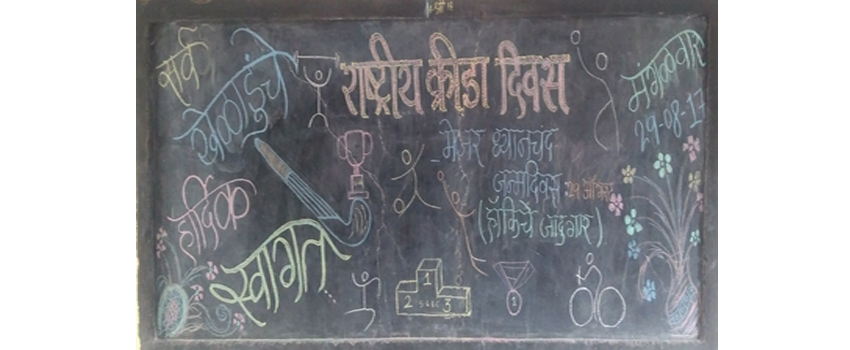 सर्व
खेळाडुंचे
हार्दिक
स्वागत...
राष्ट्रीय क्रीडा दिवस
मेजर ध्यानचंद
जन्मदिवस २९ ऑगस्ट
(हॉकिचे जादुगार)
मंगळवार
29-08-17
1
2
3
1